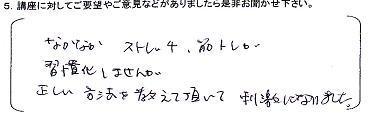 5. 講座に対してご要望やご意見などがありましたら是非お聞かせ下さい。
なかなか ストレッチ、筋トレが
習慣化しませんが
正しい方法を教えて頂いて 刺激になりました。